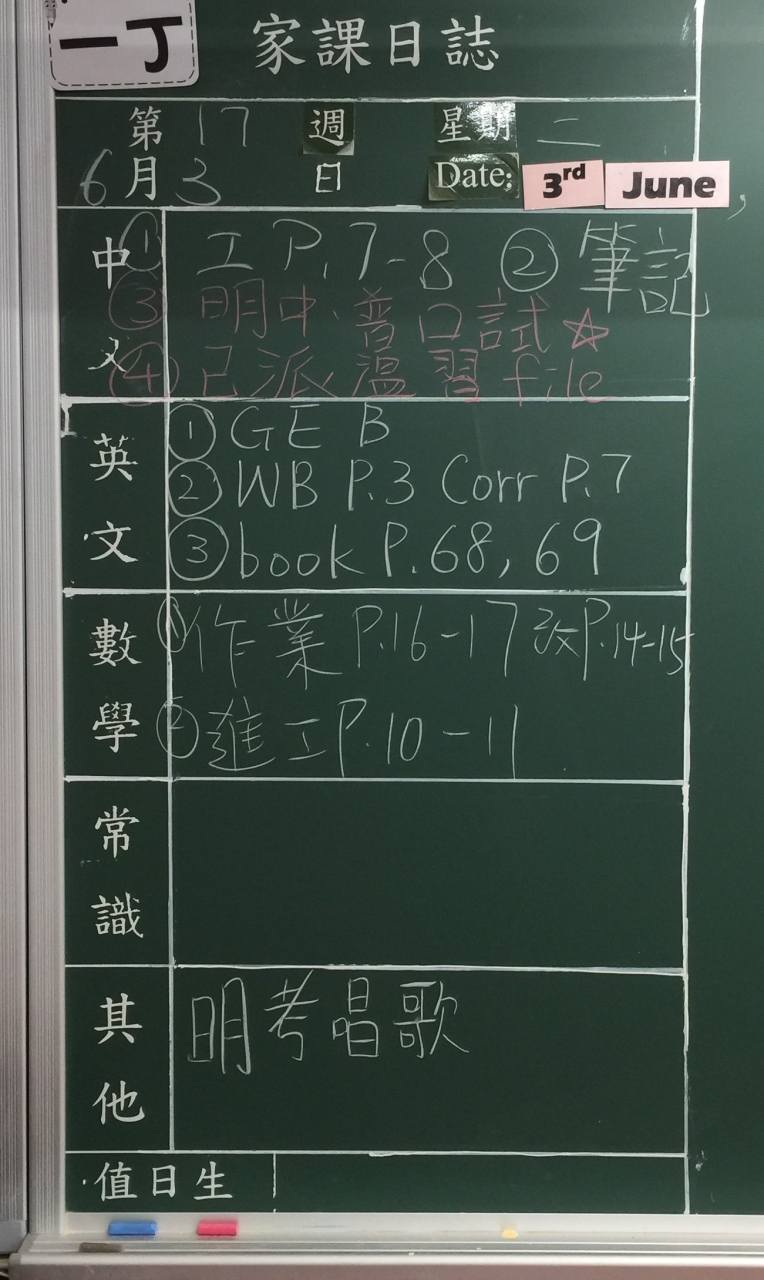 一丁
家課日誌
第 17 週 星期 二
6 月 3 日 Date: 3rd June,
中文 ① 工 P.7-8 ② 筆記
③ 明中、普口試☆
④ 已派溫習file
英文 ① GE B
② WB P.3 Corr P.7
③ book P.68, 69
數學 ① 作業 P.16-17 改P.14-15
② 進工P.10-11
常識
其他 明考唱歌
值日生